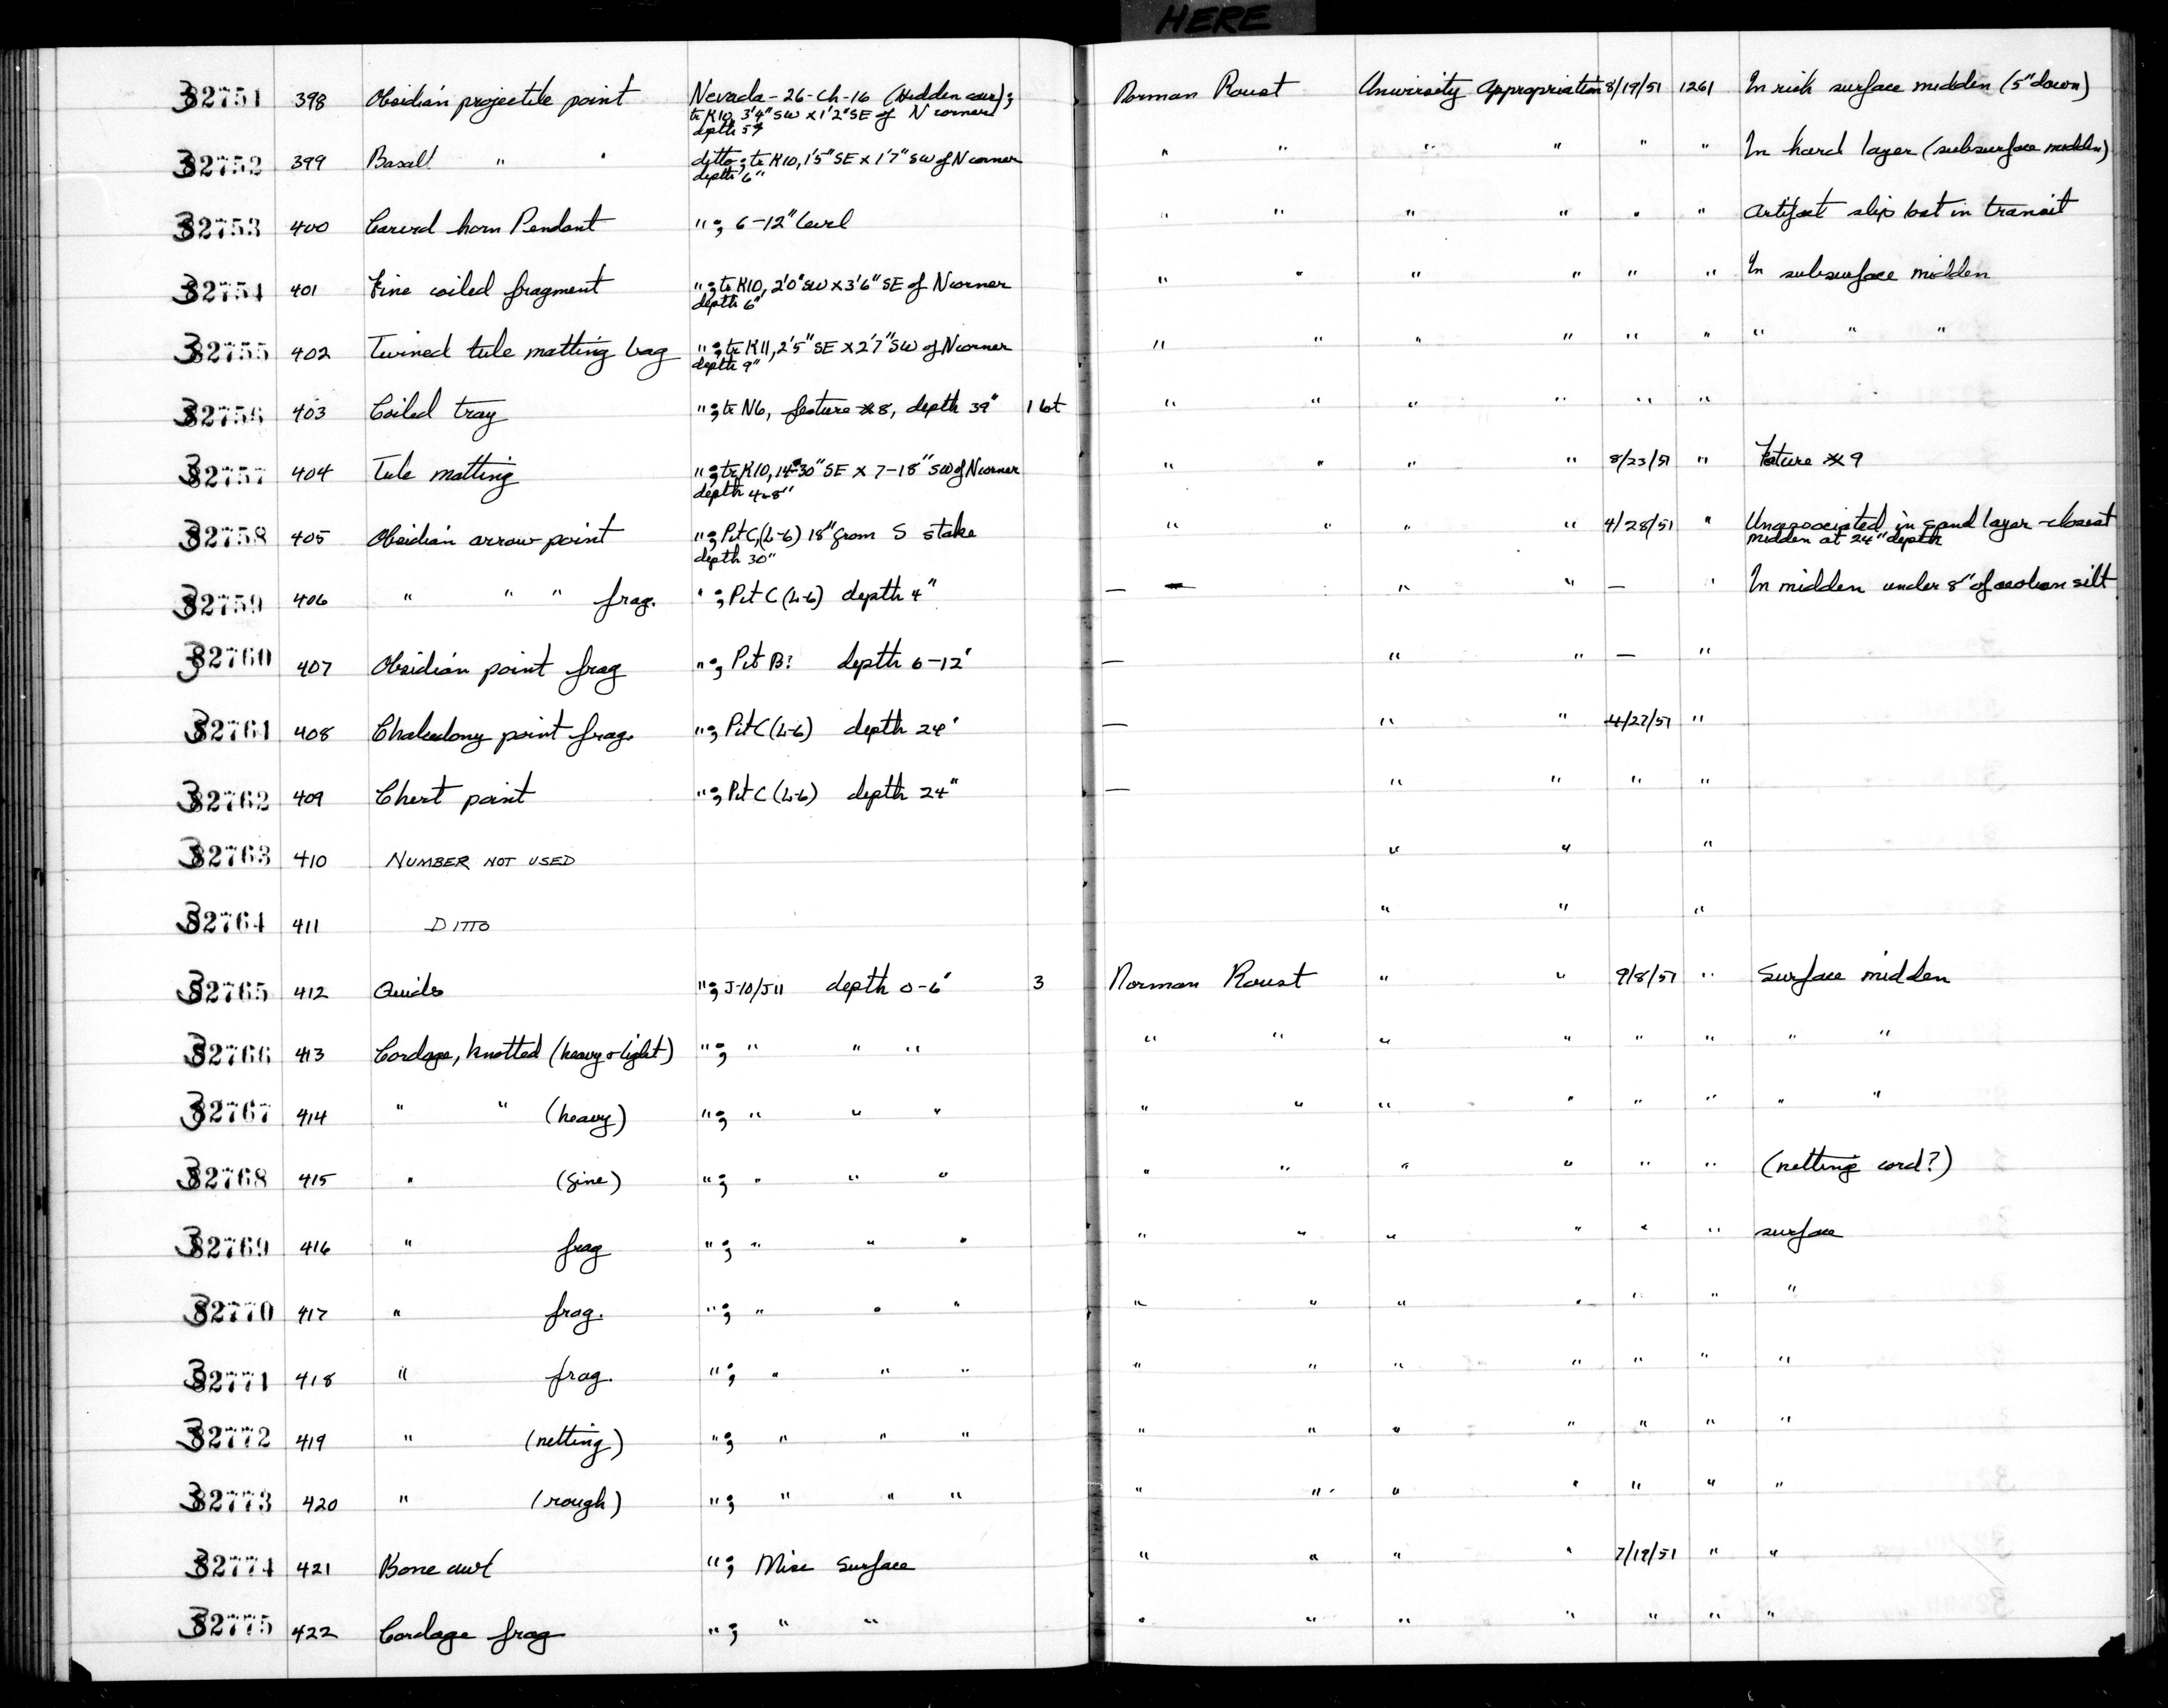 HERE
32751 398 Obsidian projectile point Nevada-26-Ch-16 (Hidden cave); Norman Roust University Appropriation 8/19/51 1261 In rich surface midden (5" down)
tr K10, 3'4" SW x 1'2" SE of N corner
depth 5"
32752 399 Basalt " " ditto; tr K10, 1'5" SE x 1'7" SW of N corner " " " " " " In hard layer (subsurface midden)
depth 6"
32753 400 Carved horn Pendant "; 6-12" level " " " " " " Artifact slip lost in transit
32754 401 Fine coiled fragment "; tr K10, 2'0" SW x 3'6" SE of N corner " " " " " " In subsurface midden
depth 6"
32755 402 Twined tule matting bag "; tr K11, 2'5" SE x 2'7" SW of N corner " " " " " " " " "
depth 9"
32756 403 Coiled tray "; tr N6, feature #8, depth 39" 1 lot " " " " " "
32757 404 Tule matting "; tr K10, 14-30" SE x 7-18" SW of N corner " " " " 8/23/51 " Feature #9
depth 4-8"
32758 405 Obsidian arrow point "; Pit C, (L-6) 18" from S stake " " " " 4/28/51 " Unassociated in sand layer - closest
depth 30" midden at 24" depth
32759 406 " " " frag. "; Pit C (L-6) depth 4" — — " " — " In midden under 8" of aeolian silt
32760 407 Obsidian point frag "; Pit B? depth 6-12" — " " — "
32761 408 Chalcedony point frag. "; Pit C (L-6) depth 24" — " " 4/27/51 "
32762 409 Chert point "; Pit C (L-6) depth 24" — " " " "
32763 410 NUMBER NOT USED " " "
32764 411 DITTO " " "
32765 412 Quids "; J-10/J11 depth 0-6" 3 Norman Roust " " 9/8/51 " Surface midden
32766 413 Cordage, knotted (heavy & light) "; " " " " " " " " " " "
32767 414 " " (heavy) "; " " " " " " " " " " "
32768 415 " (fine) "; " " " " " " " " " (netting cord?)
32769 416 " frag "; " " " " " " " " " surface
32770 417 " frag. "; " " " " " " " " " "
32771 418 " frag. "; " " " " " " " " " "
32772 419 " (netting) "; " " " " " " " " " "
32773 420 " (rough) "; " " " " " " " " " "
32774 421 Bone awl "; Misc Surface " " " " 7/19/51 " "
32775 422 Cordage frag "; " " " " " " " " "